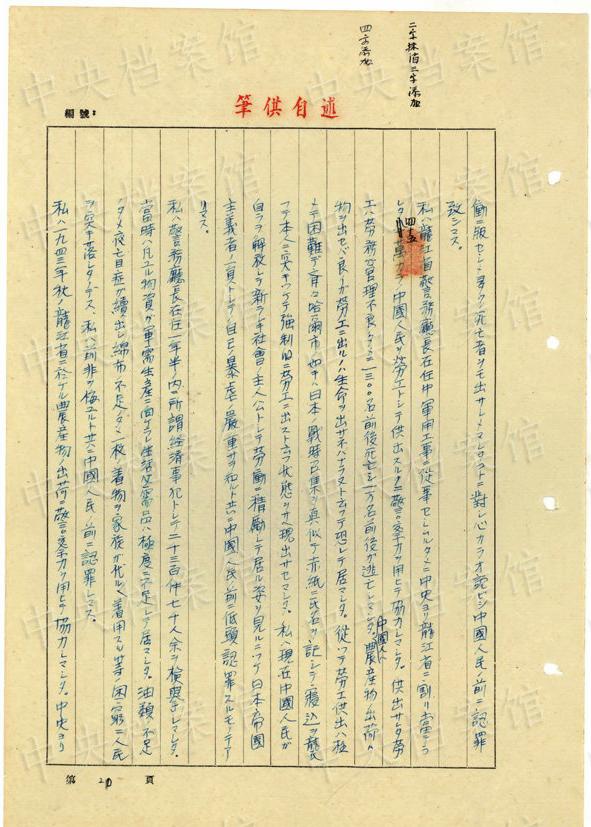 二字抹消二字添加
四字添加
述自供筆
編號:
働ニ服セシメ多クノ死亡者ヲモ出サレメマシタコトニ対シ心カラオ詫ビシ中國人民ノ前ニ認罪
致シマス。
私ハ龍江省警務廳長在任中軍用工事ニ従事セシムルタメニ中央ヨリ龍江省ニ割リ當テラ
レタ四、五萬 中國人民ヲ労工トシテ供出スルタメ警察力ヲ用ヒテ協力シマシタ。供出サレタ労
工ハ労務管理不良ノタメニ一三〇〇名前後死亡シ一万名前後が逃亡シマシタ。中國人ハ農産物ノ出荷ハ
物ヲ出セバ良イが労工ニ出ルノハ生命ヲ出サネバナラヌト云フテ恐レテ居マシタ。従ツテ労工供出ハ極
メテ困難デ斉々哈爾市ノ如キハ日本ノ戦時召集ヲ真似テ赤紙ニ氏名ヲ記シテ寝込ヲ襲
フテ本人ニ突キツケテ強制的ニ労工ニ出スト云フ状態サヘ現出サセマシタ。私ハ現在中國人民が
自ラヲ解放シテ新ラシキ社會ノ主人公トシテ労働ニ精励シテ居ル姿ヲ見ルニツケ日本帝國
主義者ノ一員トシテノ自己ノ暴虐ノ厳重サヲ知ルト共ニ中國人民ノ前ニ低頭認罪スルモノデア
リマス。
私ハ警務廳長在任一年半ノ内ニ所謂経済事犯トシテ二十三百件七十人余ヲ検挙シマシタ。
當時ハ凡ユル物資が軍需生産ニ向ケラレ生活必需品ハ極度ニ不足シテ居マシタ。油類ノ不足
ノタメ夜亡目症が續出シ綿布不足ノタメ一枚ノ着物ヲ家族が代ル〲着用スル等ノ困窮ニ人民
ヲ突キ落シタノデス、私ハ前非ヲ悔ユルト共ニ中國人民ノ前ニ認罪シマス。
私ハ一九四三年秋ノ龍江省ニ於ケル農産物ノ出荷ニ警察力ヲ用ヒテ協力シマシタ。中央ヨリ
第 20 頁